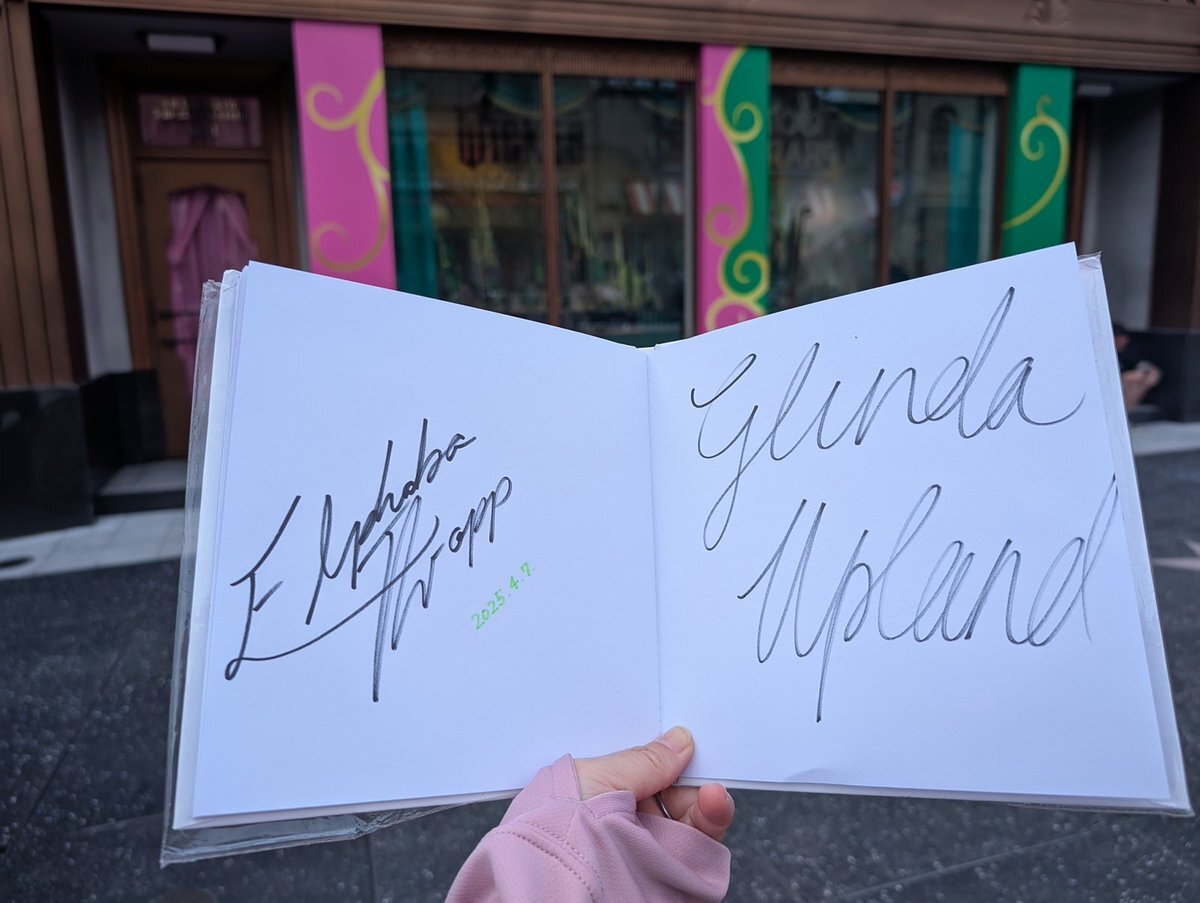 Elphaba
Thropp
2025.4.7.
Glinda
Upland